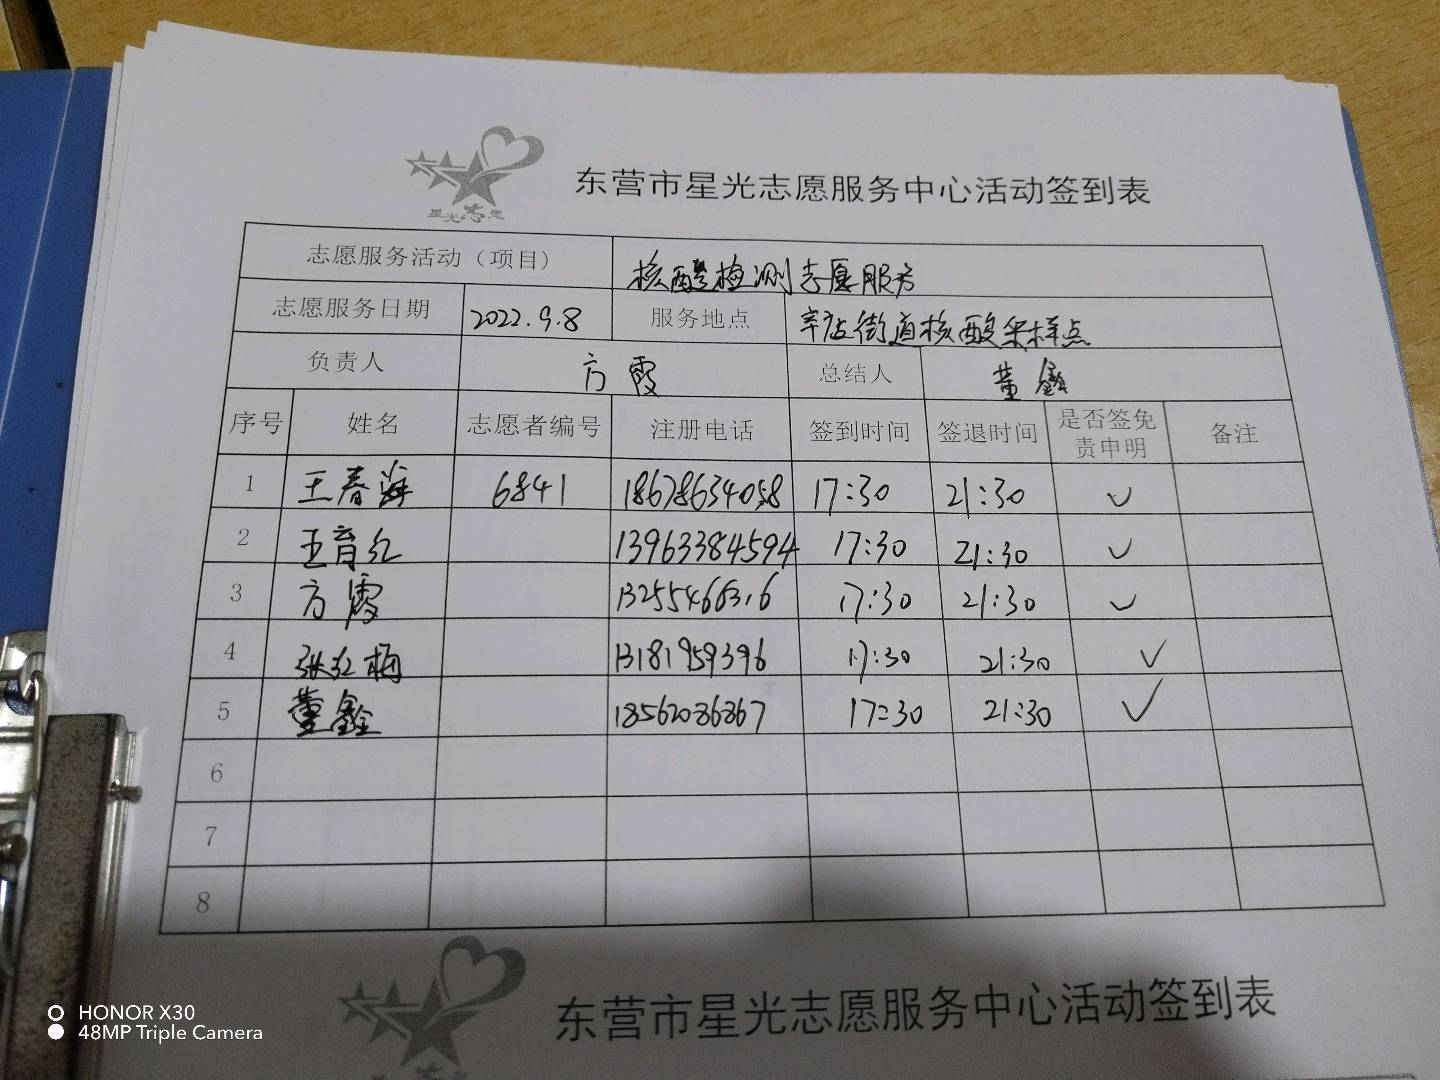 星光志愿
东营市星光志愿服务中心活动签到表
志愿服务活动（项目） 核酸检测志愿服务
志愿服务日期 2022.9.8 服务地点 辛店街道核酸采样点
负责人 方霞 总结人 董鑫
序号 姓名 志愿者编号 注册电话 签到时间 签退时间 是否签免责申明 备注
1 王春海 6841 18678634058 17:30 21:30 ✓
2 王育红 13963384594 17:30 21:30 ✓
3 方霞 13255466316 17:30 21:30 ✓
4 张红梅 13181959396 17:30 21:30 ✓
5 董鑫 18562086867 17:30 21:30 ✓
6
7
8
东营市星光志愿服务中心活动签到表
HONOR X30
48MP Triple Camera